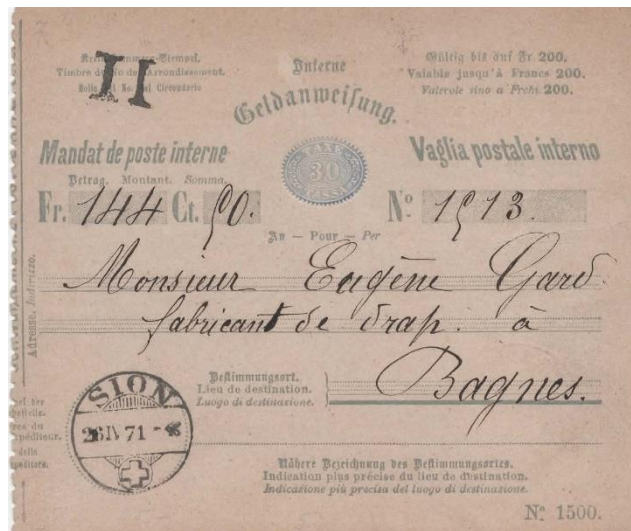 II
Timbre du No de l'Arrondissement.
Interne
Geldanweisung.
Gültig bis auf Fr. 200.
Valable jusqu'à Francs 200.
Valevole sino a Frchi. 200.
Mandat de poste interne
TAXE
30
TASSA
Vaglia postale interno
Betrag. Montant. Somma.
Fr. 144 Ct. 50. No 1513.
An — Pour — Per
Adresse. Indirizzo.
Monsieur Eugène Gard
fabricant de drap. à
Bagnes.
Bestimmungsort.
Lieu de destination.
Luogo di destinazione.
SION
26 IV 71
Nähere Bezeichnung des Bestimmungsortes.
Indication plus précise du lieu de destination.
Indicazione più precisa del luogo di destinazione.
No 1500.